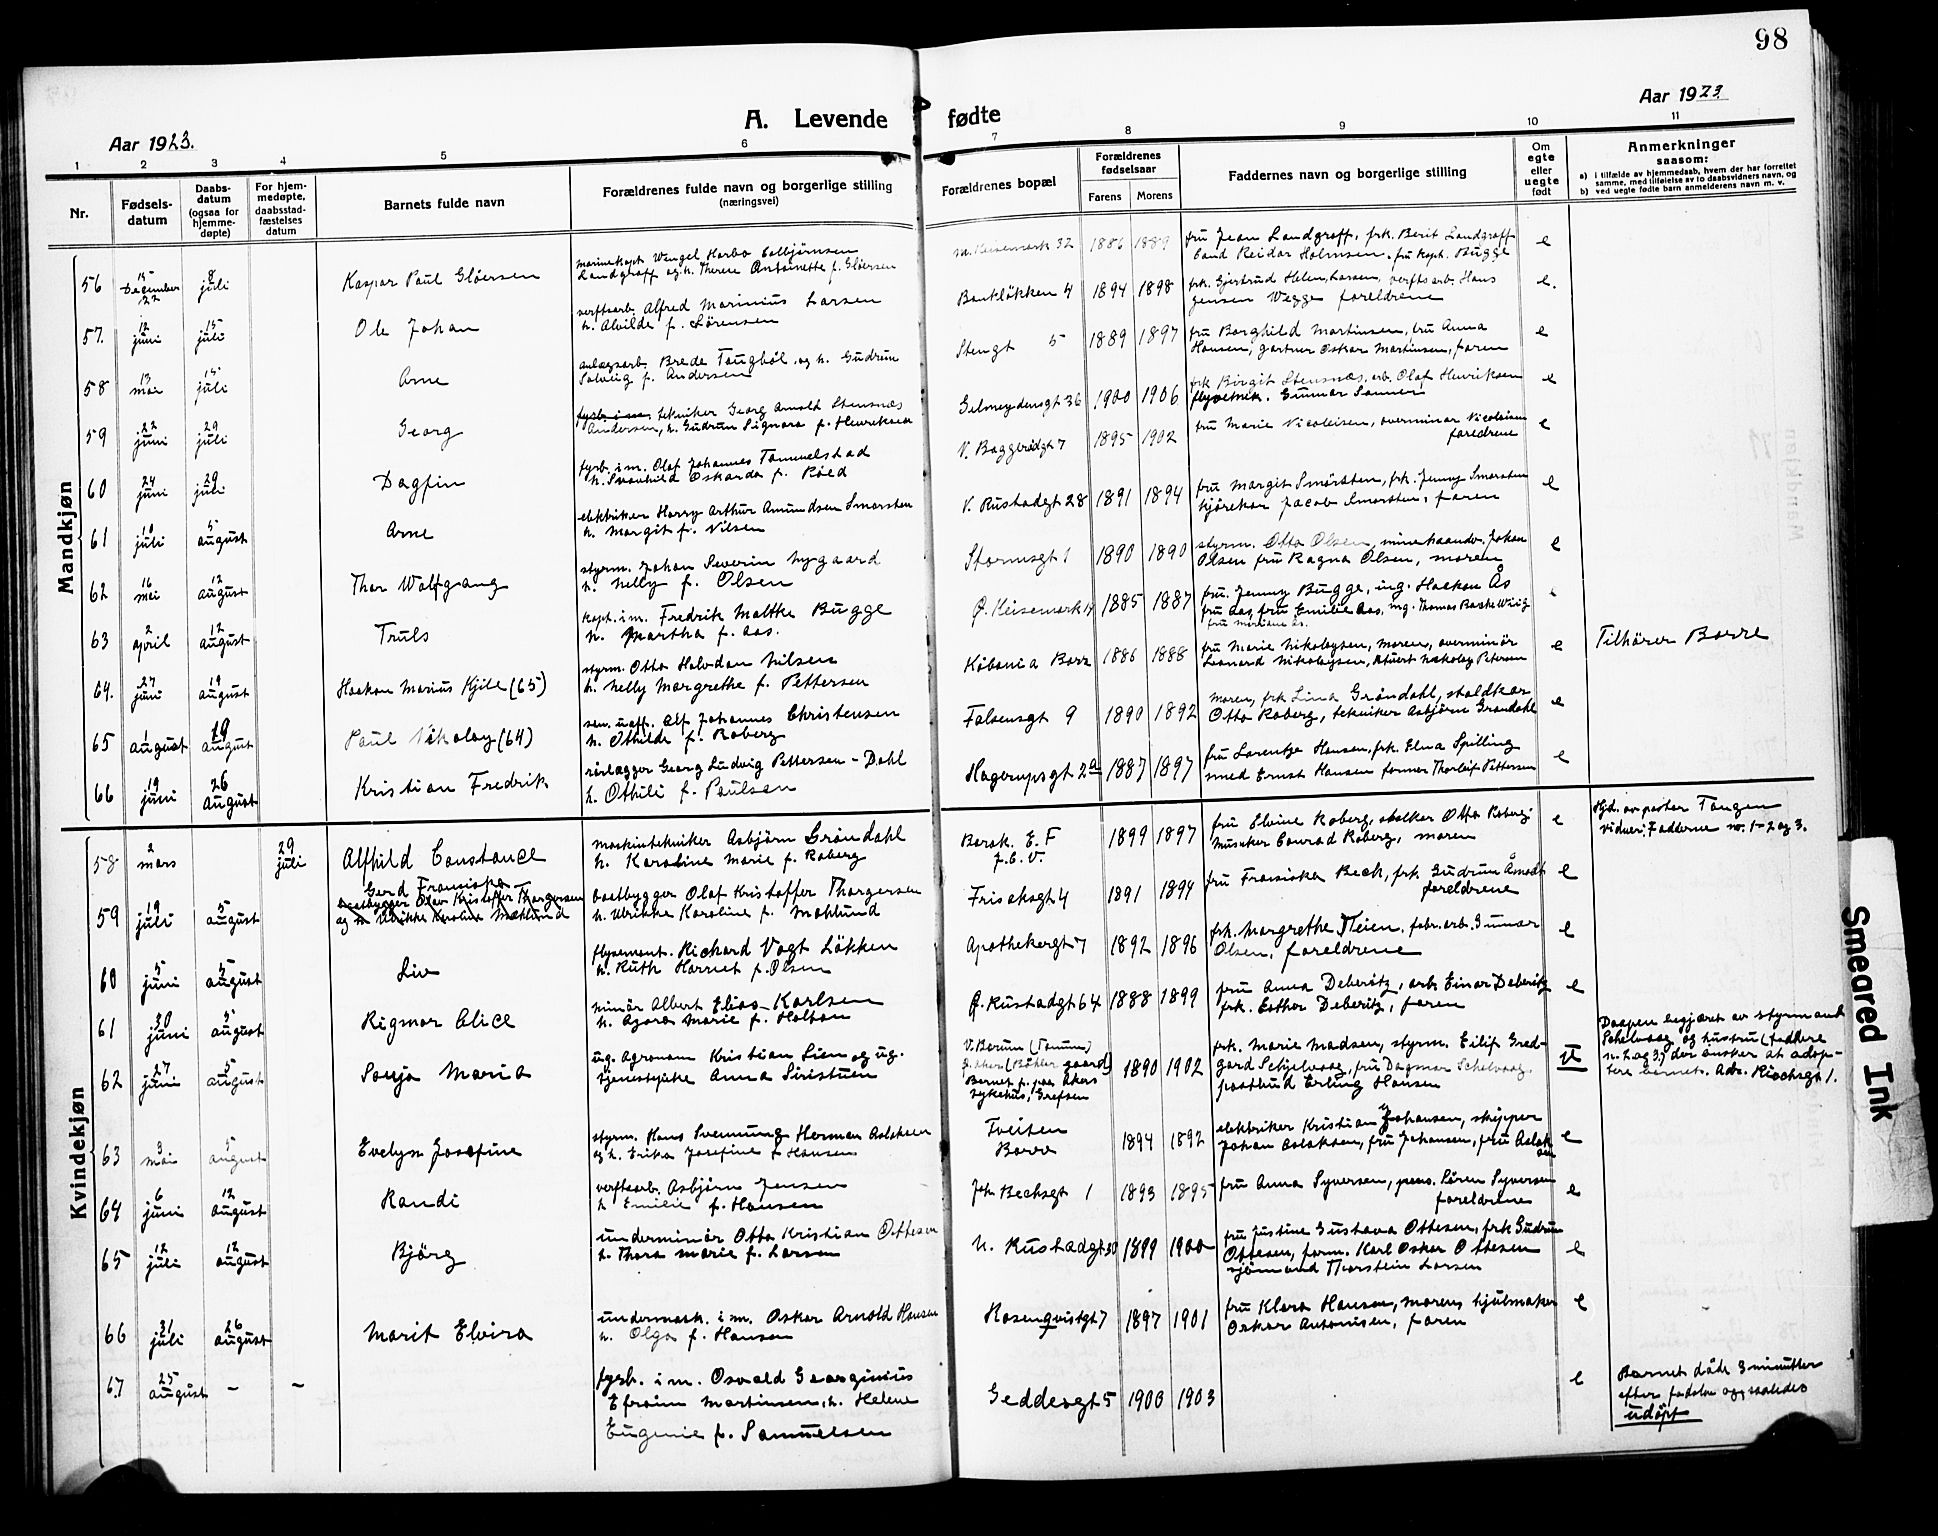 98
Aar 1923.
A. Levende fødte
Aar 1923.
1 2 3 4 5 6 7 8 9 10 11
Nr.
Fødsels-
datum
Daabs-
datum
(ogsaa for
hjemme-
døpte)
For hjem-
medøpte,
daabsstad-
fæstelses
datum
Barnets fulde navn
Forældrenes fulde navn og borgerlige stilling
(næringsvei)
Forældrenes bopæl
Forældrenes
fødselsaar
Farens Morens
Faddernes navn og borgerlige stilling
Om
egte
eller
uegte
født
Anmerkninger
saasom:
a) i tilfælde av hjemmedaab, hvem der har forrettet
samme, med tilføielse av to daabsvidners navn, og
b) ved uegte fødte barn anmelderens navn m. v.
Mandkjøn
56 15 December 22 8 juli Kaspar Paul Glöersen
marinekapt. Wengel Harbo Colbjörnsen
Landgraff og h. Therese Antoinette f. Glöersen
N. Keisemark 32 1886 1889
fru Jean Landgraff, frk. Berit Landgraff
Cand Reidar Holmsen, fru kapt. Bugge
e
57. 12 juni 15 juli Ole Johan
verftsarb. Alfred Marinius Larsen
h. Alvilde f. Sörensen
Banklökken 4 1894 1898
frk. Gjertrud Helen Larsen, verftsarb. Hans
Jensen Wegge foreldrene
e.
58 13 mai 15 juli Arne
anlægsarb. Brede Taugböl, og h. Gudrun
Solveig f. Andersen
Stengt 5 1889 1897
fru Borghild Martinsen, fru Anna
Hansen, gartner Oskar Martinsen, faren
e
59 22 juni 29 juli Georg
tekniker Georg Arnold Stensnæs
Andersen, h. Gudrun Signora f. Henriksen
Gelmeydensgt 36 1900 1906
frk Birgit Stensnæs, arb. Olaf Henriksen
flyvetekn. Gunnar Sanner
e
60 24 juni 29 juli Dagfin
fyrb. i m. Olaf Johannes Tömmelstad
h. Svanhild Oskarda f. Röed
V. Baggerödgt 7 1895 1902
fru Marie Nicolaisen, overminör Nicolaisen
foreldrene
e
61 10 juli 5 august Arne
elektriker Harry Arthur Amundsen Smørsten
h. Margit f. Nilsen
V. Rustadgt 28 1891 1894
fru Margit Smörsten, frk. Jenny Smørsten
kjörekar Jacob Smørsten, faren
e
62 16 mai 12 august Thor Wolfgang
styrm. Johan Severin Nygaard
h. Nelly f. Olsen
Stormsgt 1 1890 1890
styrm. Otto Olsen, minehaandv. Johan
Olsen fru Ragna Olsen, moren
e
63 2 april 12 august Truls
kapt. i m. Fredrik Malthe Bugge
h. Martha f. Aas.
Ø. Keisemark 14 1885 1887
fru. Jenny Bugge, ing. Haakon Ås
fru Aas, fru Emilie Aas, ing. Thomas Bache Wiig
64. 27 juni 19 august Haakon Marius Kjile (65)
styrm. Otto Halvdan Nilsen
h. Nelly Margrethe f. Pettersen
Köbania Borre 1886 1888
fru Marie Nikolaysen, Moren, overminör
Leonard Nikolaysen, Nikolay Petersen
e
Tilhörer Borre
65 1 august 19 august Paul Nikolay (64)
sen. uoff. Alf Johannes Christensen
h. Othilde f. Roberg
Falsensgt 9 1890 1892
moren, frk Lina Gröndahl, staldkar
Otto Roberg, tekniker Asbjörn Gröndahl
e
66 19 juni 26 august Kristian Fredrik
rörlægger Georg Ludvig Pettersen-Dahl
h. Othili f. Paulsen
Hagerupsgt 2a 1887 1897
fru Lorentze Hansen, frk. Elna Spilling
smed Ernst Hansen former Thorleif Pettersen
e
Kvindekjøn
58 2 mars 29 juli Alfhild Constance
maskintekniker Asbjörn Gröndahl
h. Karoline Marie f. Roberg
Barak. E. F 1899 1897
fru Elvine Roberg, Otto Roberg,
musiker Conrad Roberg, moren
e
Hjd. av pastor Tangen
vidner: Fadderne nr. 1-2 og 3.
59 19 juli 5 august Gerd Franciska
baatbygger Olav Kristoffer Thorgersen
og h Ulrikke Karoline Moklund
baatbygger Olaf Kristoffer Thorgersen
h. Ulrikke Karoline f. Moklund
Friisaksgt 4 1891 1894
fru Fransiska Beck, frk. Gudrun Åmodt
foreldrene
e
60 5 juni 5 august Liv
flysement. Richard Vogt Lökken
h. Ruth Harriet f. Olsen
Apothekergt 7 1892 1896
frk. Margrethe Meien, fabr.arb. Gunnar
Olsen, foreldrene
e
61 30 juni 5 august Rigmor Alice
minör Albert Elias Karlsen
h. Agora Marie f. Holtan
Ø. Rustadgt 64 1888 1899
fru Anna Deberitz, arb. Einar Deberitz
frk. Esther Deberitz, faren
e
62 27 juni 5 august Sonja Maria
ug. Agronom Kristian Lien og ug.
tjenestepike Anna Siristuen
V. Bærum (Tanum)
Barnet f. paa Akers
sykehus, Grefsen
1890 1902
frk. Marie Madsen, styrm. Eilif Gred-
gard Schjelvaag, fru Dagmar Schelvaag
postbud Erling Hansen
u
Daapen begjæret av styrmand
Schelvaag og hustru (faddere
nr. 2 og 3) der önsker at adop-
tere barnet. Adr. Kirchsgt 1.
63 3 mai 5 august Evelyn Josefine
styrm. Hans Svennung Herman Aslaksen
og h. Erika Josefine f Hansen
Tveiten
Borre
1894 1892
elektriker Kristian Johansen, skipper
Johan Aslaksen, fru Johansen, fru Aslak
sen
e
64 6 juni 12 august Randi
verftsarb. Asbjörn Jensen
h Emilie f. Hansen
Joh. Bechsgt 1 1893 1895
fru Anna Syversen, pens. Sören Syversen
foreldrene
e
65 12 juli 12 august Bjørg
underminör Otto Kristian Ottesen
h. Thora Marie f. Larsen
N. Rustadgt 30 1899 1900
fru Justine Gustava Ottesen, frk Gudrun
Ottesen, form. Karl Oskar Ottesen
sjömand Thorstein Larsen
e
66 31 juli 26 august Marit Elvira
undermask. i m. Oskar Arnold Hansen
h. Olga f. Hansen
Rosenqvistgt 7 1897 1901
fru Klara Hansen, moren, hjulmaker
Oskar Antonisen, faren
e
67 25 august – –
fyrb. i m. Osvald Georginius
Efraim Martinsen, h. Helene
Eugenie f. Samuelsen
Geddesgt 5 1900 1903
e
Barnet døde 3 minutter
efter fødslen og saaledes
udöpt
Smeared Ink